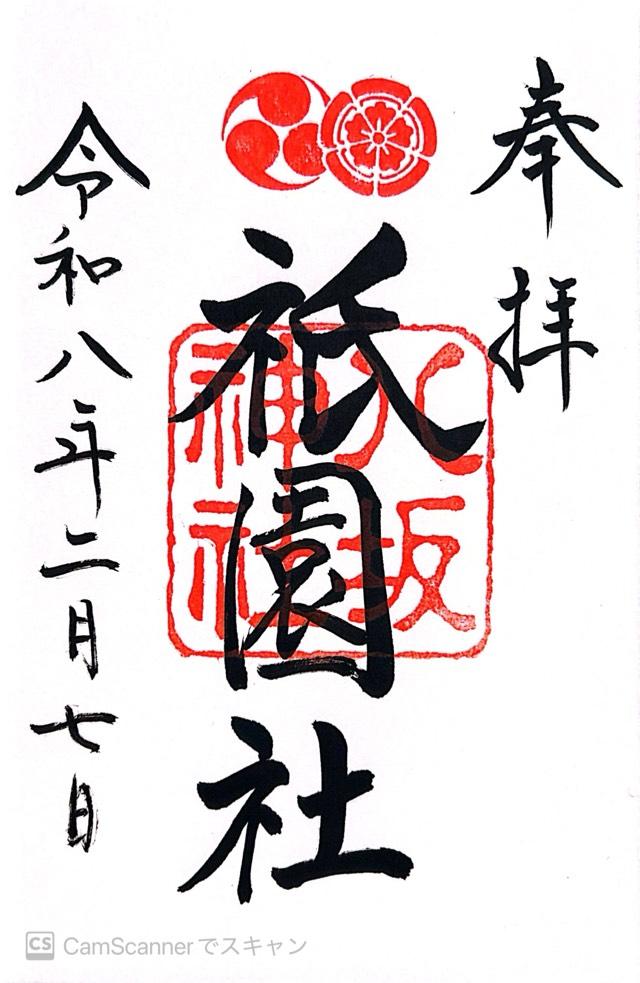 奉拝
祇園社
八坂
神社
令和八年二月七日
CS CamScannerでスキャン